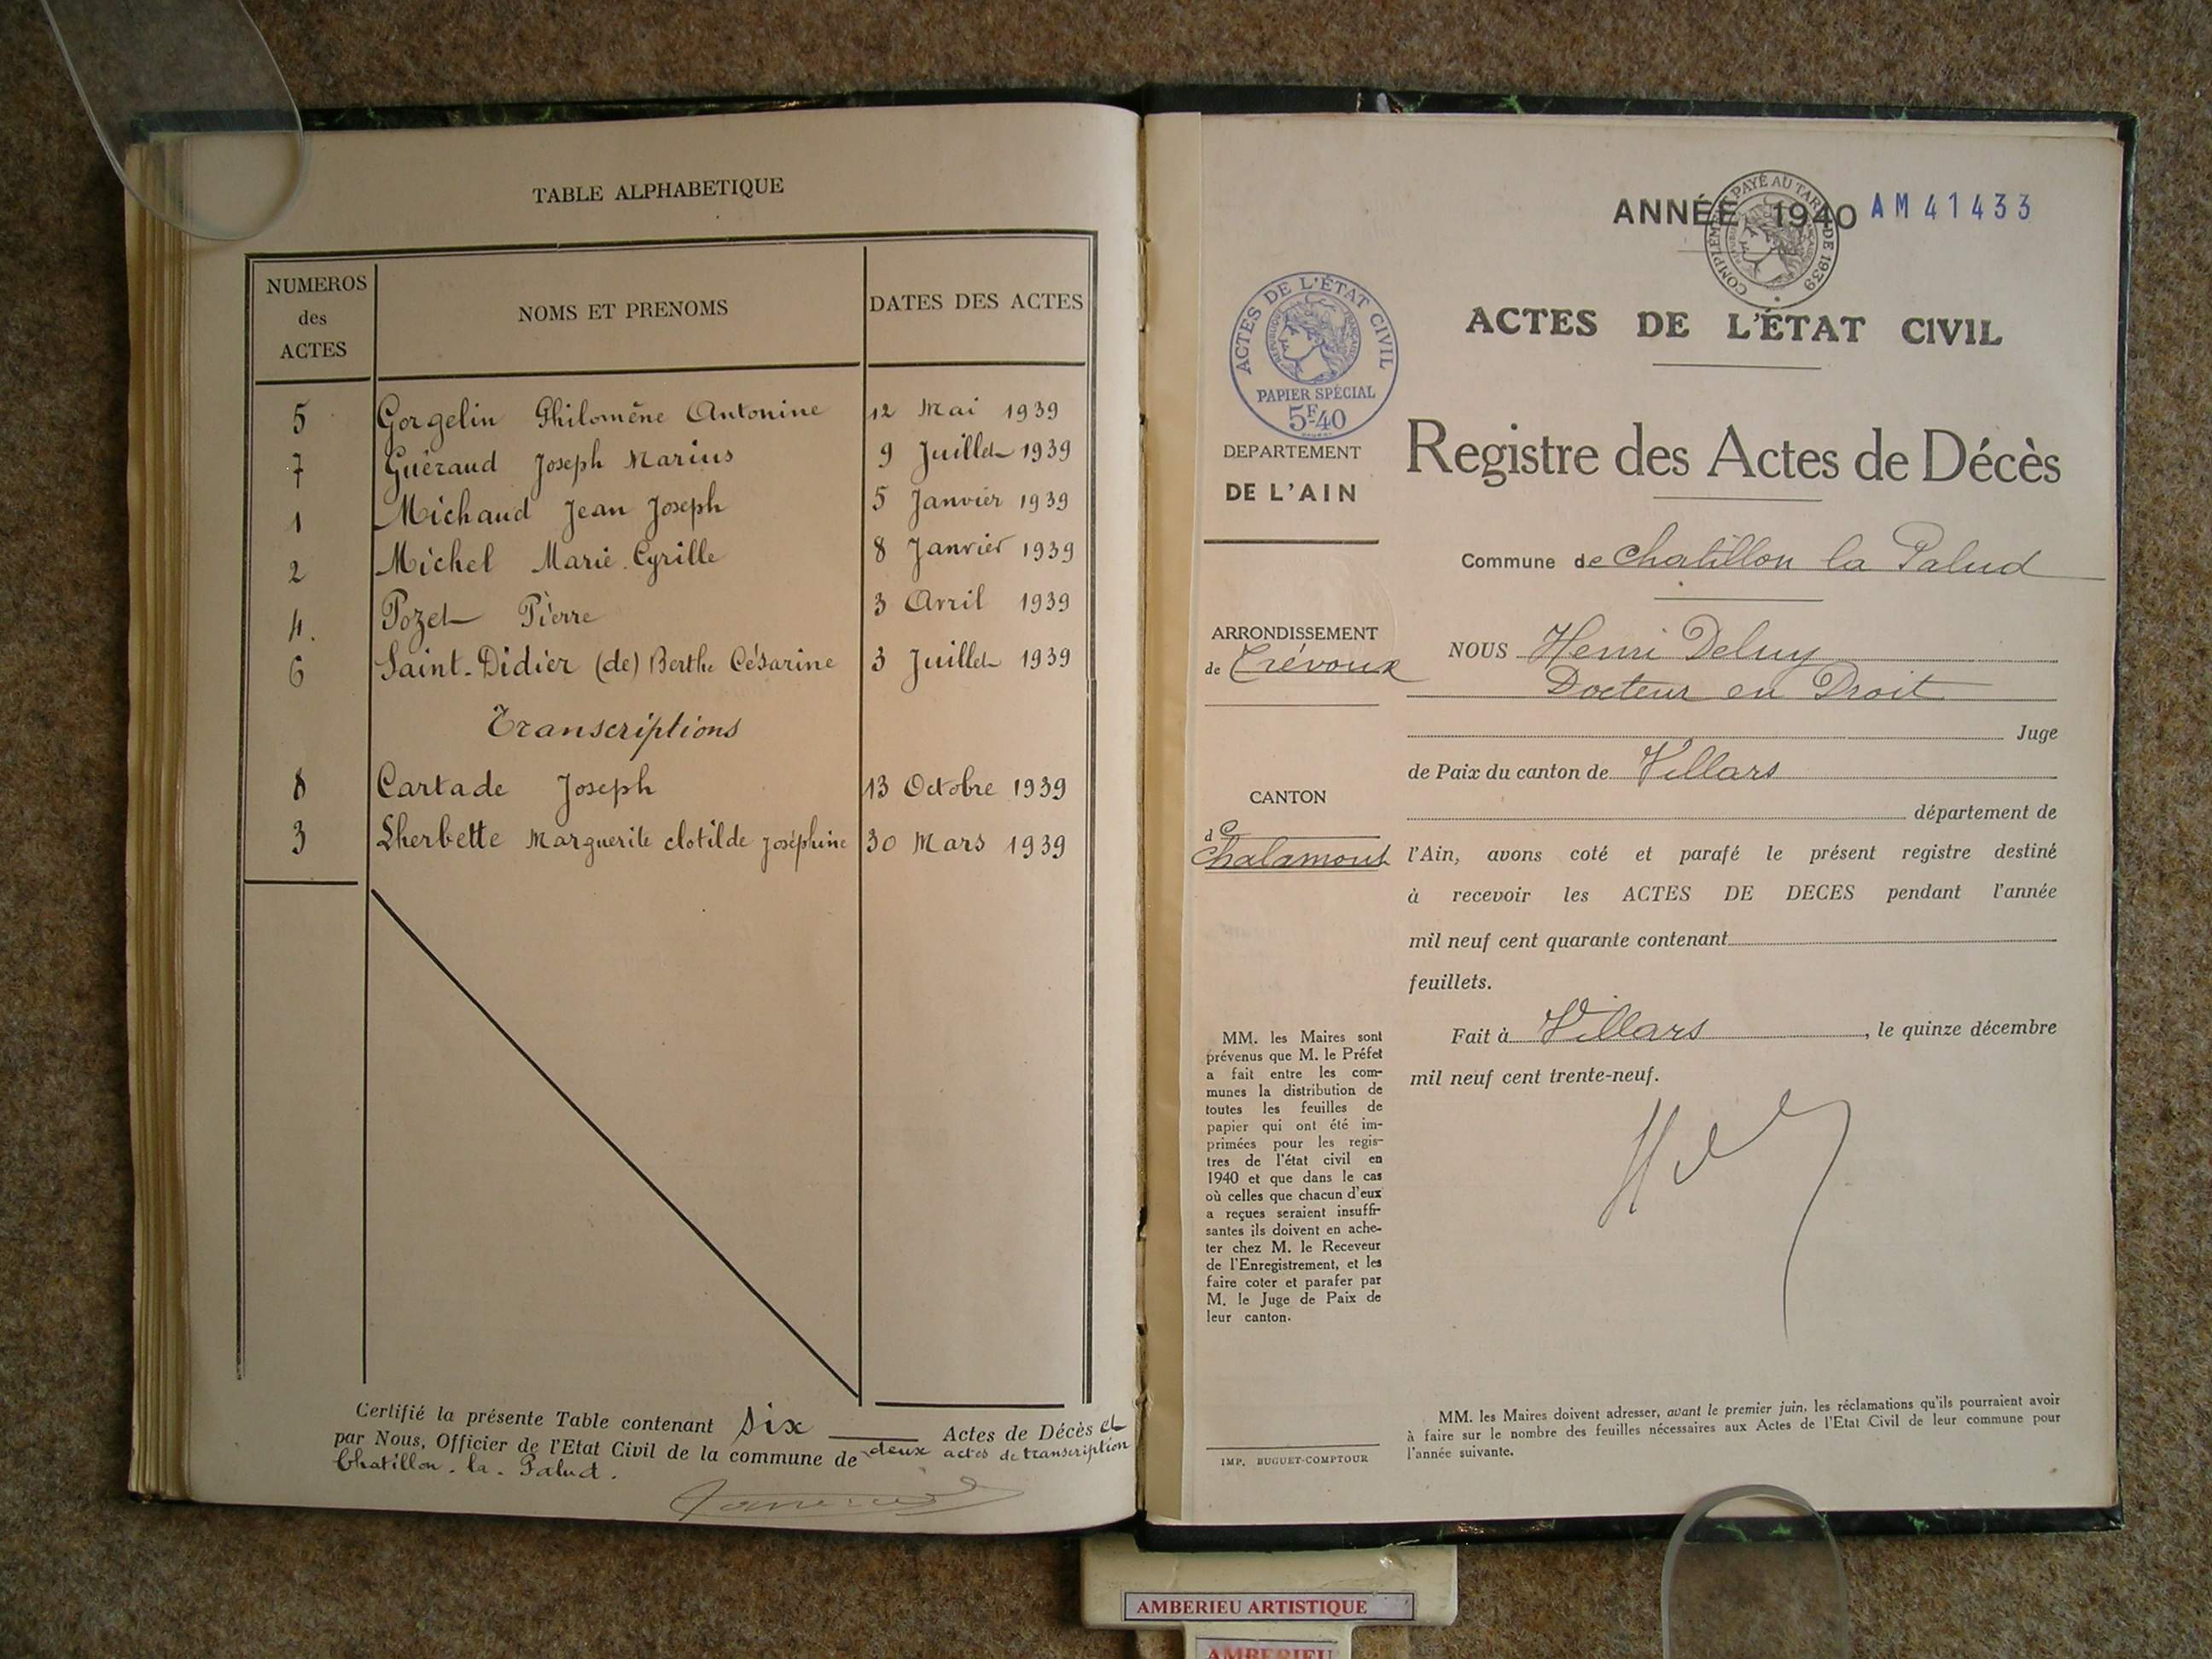 TABLE ALPHABETIQUE
NUMEROS des ACTES
NOMS ET PRENOMS
DATES DES ACTES
5 Gorgelin Philomène Antonine 12 Mai 1939
7 Guéraud Joseph Marius 9 Juillet 1939
1 Michaud Jean Joseph 5 Janvier 1939
2 Michel Marie Cyrille 8 Janvier 1939
4. Pozet Pierre 3 Avril 1939
6 Saint-Didier (de) Berthe Césarine 3 Juillet 1939
Transcriptions
8 Cartade Joseph 13 Octobre 1939
3 Lherbette Marguerite clotilde Joséphine 30 Mars 1939
Certifié la présente Table contenant six Actes de Décès et
par Nous, Officier de l'Etat Civil de la commune de deux actes de transcription
Chatillon-la-Palud.
ANNÉE 1940 AM 41433
COMPLÉMENT PAYÉ AU TARIF DE 1939
ACTES DE L'ÉTAT CIVIL
RÉPUBLIQUE FRANÇAISE
PAPIER SPÉCIAL
5F.40
ACTES DE L'ÉTAT CIVIL
Registre des Actes de Décès
DEPARTEMENT
DE L'AIN
Commune de Chatillon la Palud
ARRONDISSEMENT
de Trévoux
CANTON
de
Chalamont
NOUS Henri Deluy
Docteur en Droit
Juge
de Paix du canton de Villars
département de
l'Ain, avons coté et parafé le présent registre destiné
à recevoir les ACTES DE DECES pendant l'année
mil neuf cent quarante contenant
feuillets.
Fait à Villars, le quinze décembre
mil neuf cent trente-neuf.
MM. les Maires sont
prévenus que M. le Préfet
a fait entre les com-
munes la distribution de
toutes les feuilles de
papier qui ont été im-
primées pour les regis-
tres de l'état civil en
1940 et que dans le cas
où celles que chacun d'eux
a reçues seraient insuffi-
santes ils doivent en ache-
ter chez M. le Receveur
de l'Enregistrement, et les
faire coter et parafer par
M. le Juge de Paix de
leur canton.
IMP. BUGUET-COMPTOUR
MM. les Maires doivent adresser, avant le premier juin, les réclamations qu'ils pourraient avoir
à faire sur le nombre des feuilles nécessaires aux Actes de l'Etat Civil de leur commune pour
l'année suivante.
AMBERIEU ARTISTIQUE
AMBERIEU